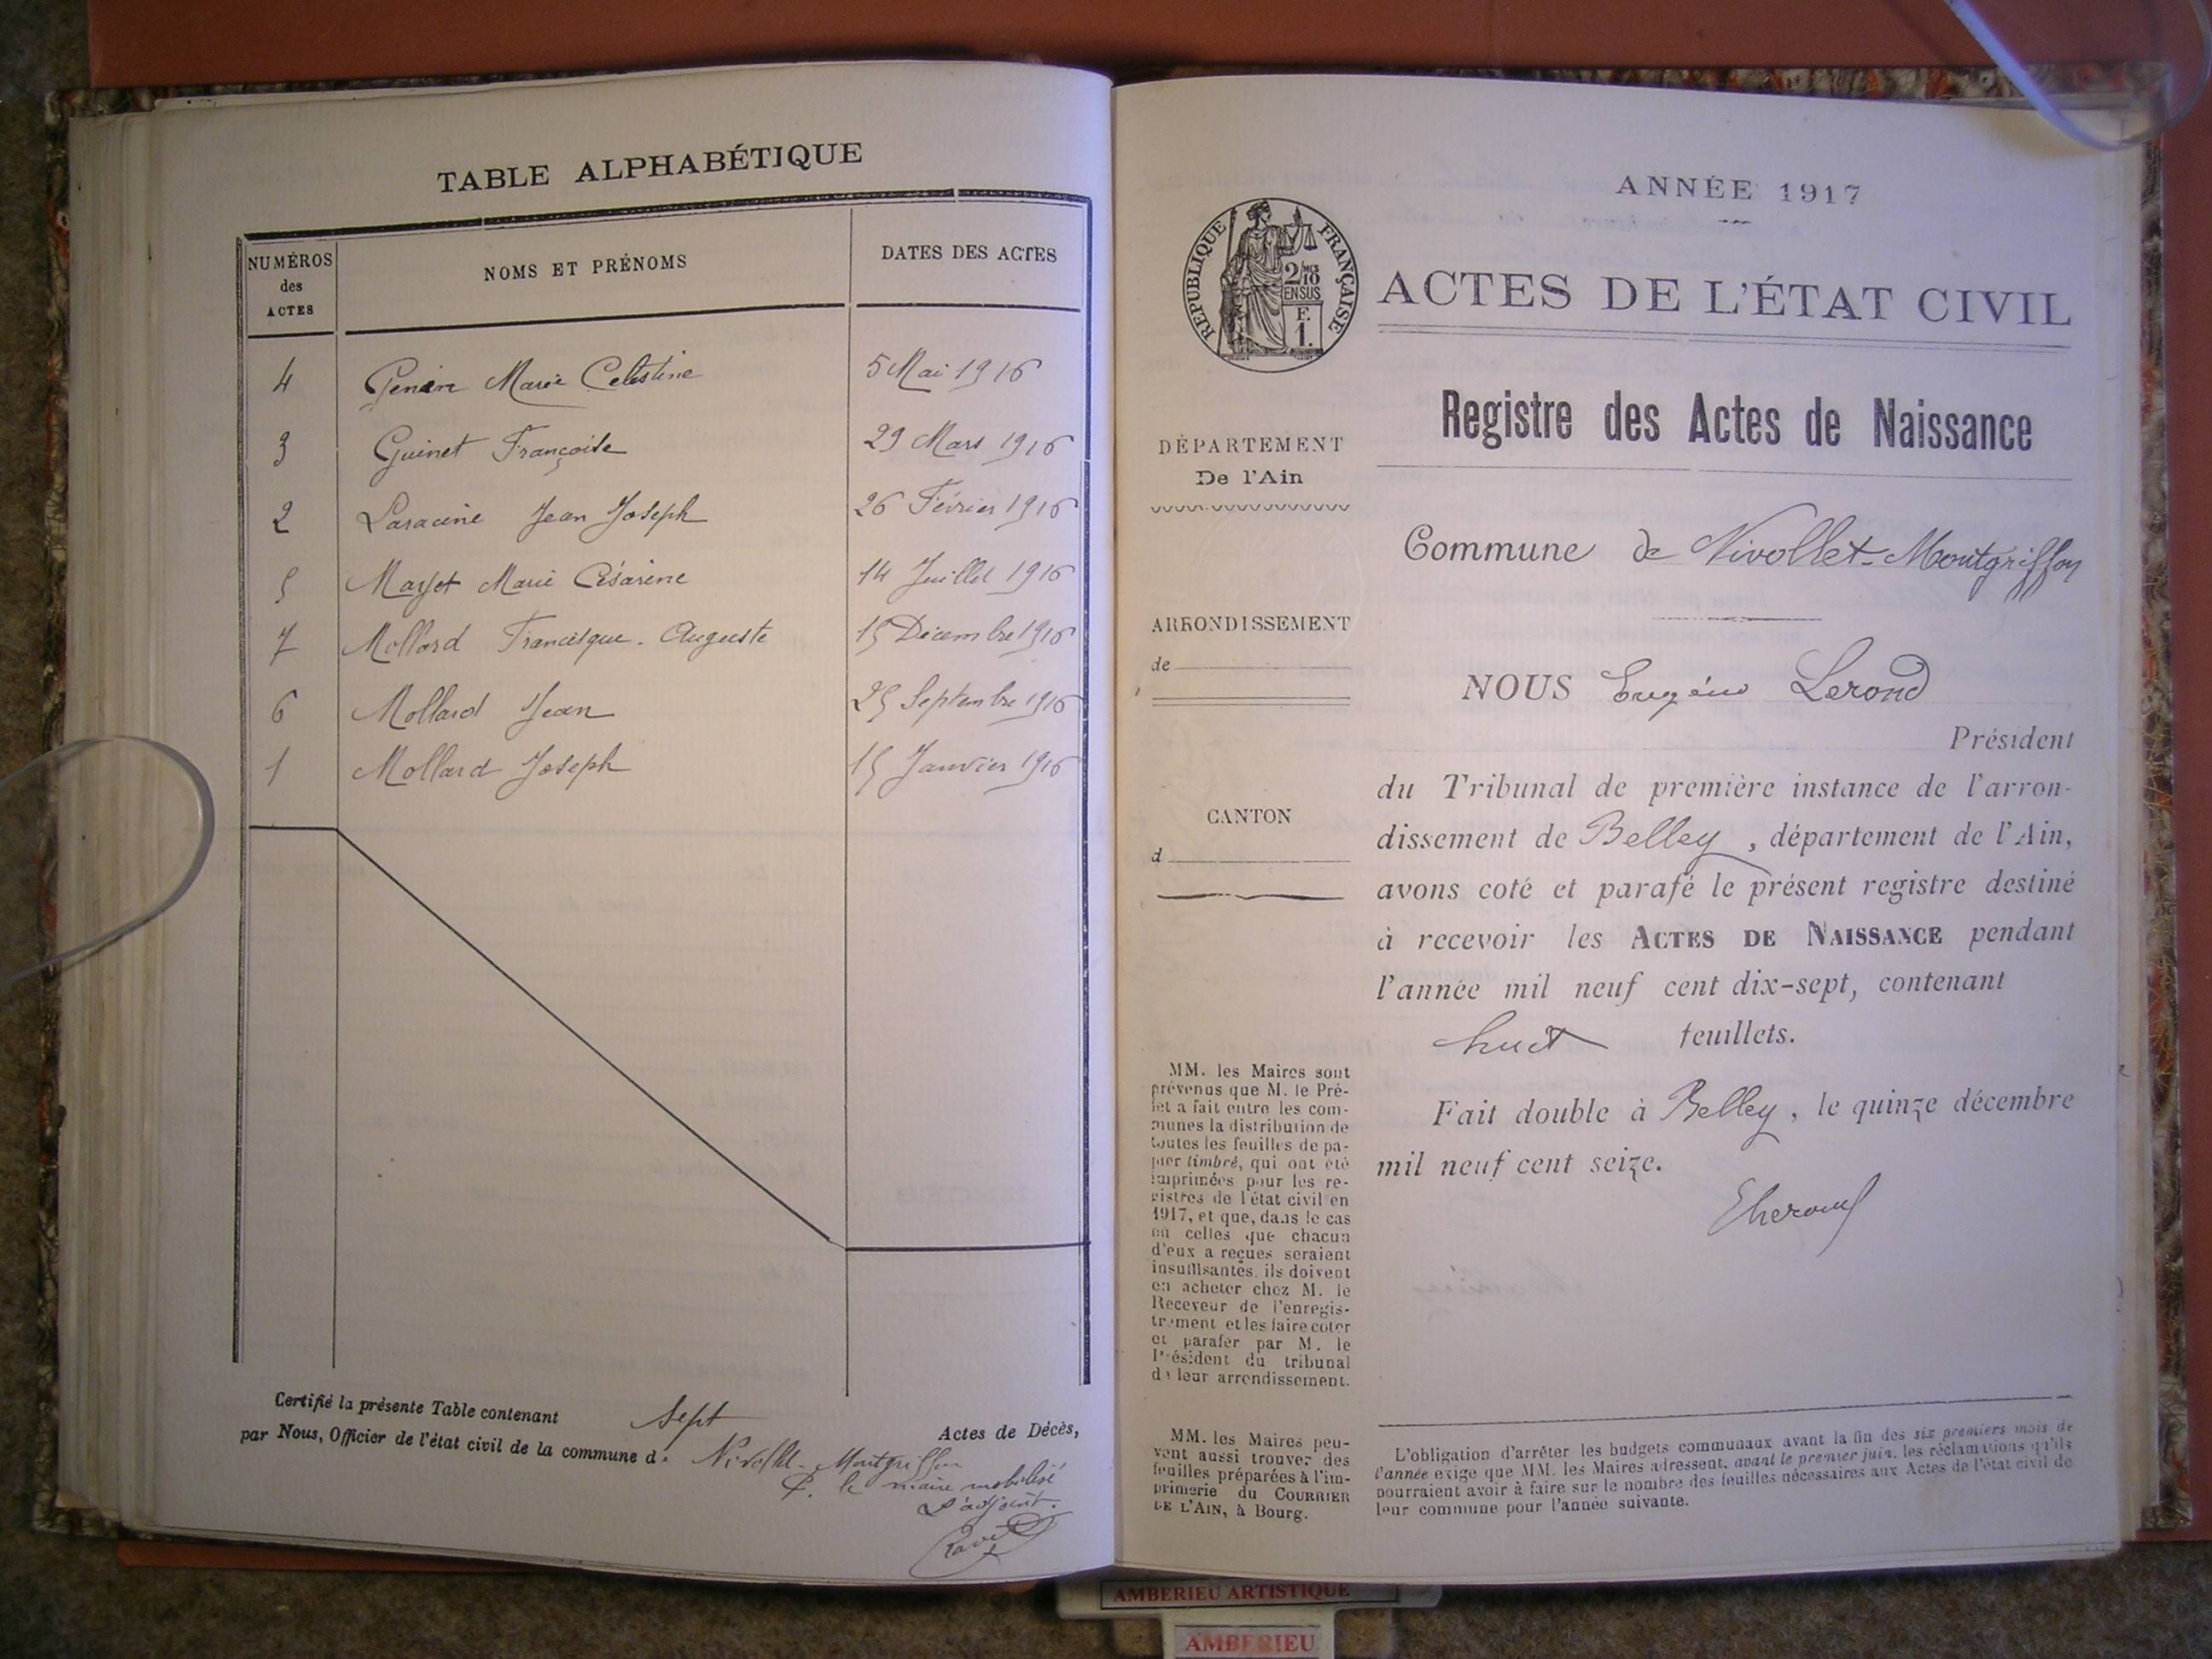 TABLE ALPHABÉTIQUE
NUMÉROS des ACTES
NOMS ET PRÉNOMS
DATES DES ACTES
4 Genin Marie Celestine 5 Mai 1916
3 Guinet Françoise 29 Mars 1916
2 Laracine Jean Joseph 26 Février 1916
5 Marie Césarine 14 Juillet 1916
7 Mollard Francisque-Auguste 15 Décembre 1916
6 Mollard Jean 25 Septembre 1916
1 Mollard Joseph 15 Janvier 1916
Certifié la présente Table contenant sept Actes de Décès,
par Nous, Officier de l'état civil de la commune d. Nivollet-Montgriffon
P. le maire mobilisé
L'adjoint.
ANNÉE 1917
RÉPUBLIQUE FRANÇAISE
2/10 MES
EN SUS
F.
1.
ACTES DE L'ÉTAT CIVIL
Registre des Actes de Naissance
DÉPARTEMENT
De l'Ain
ARRONDISSEMENT
de
CANTON
d
MM. les Maires sont
prévenus que M. le Pré-
fet a fait entre les com-
munes la distribution de
toutes les feuilles de pa-
pier timbré, qui ont été
imprimées pour les re-
gistres de l'état civil en
1917, et que, dans le cas
où celles que chacun
d'eux a reçues seraient
insuffisantes, ils doivent
en acheter chez M. le
Receveur de l'enregis-
trement et les faire coter
et parafer par M. le
Président du tribunal
de leur arrondissement.
MM. les Maires peu-
vent aussi trouver des
feuilles préparées à l'im-
primerie du COURRIER
DE L'AIN, à Bourg.
Commune de Nivollet-Montgriffon
NOUS Eugène Lerond
Président
du Tribunal de première instance de l'arron-
dissement de Belley, département de l'Ain,
avons coté et parafé le présent registre destiné
à recevoir les ACTES DE NAISSANCE pendant
l'année mil neuf cent dix-sept, contenant
huit feuillets.
Fait double à Belley, le quinze décembre
mil neuf cent seize.
L'obligation d'arrêter les budgets communaux avant la fin des six premiers mois de
l'année exige que MM. les Maires adressent, avant le premier juin, les réclamations qu'ils
pourraient avoir à faire sur le nombre des feuilles nécessaires aux Actes de l'état civil de
leur commune pour l'année suivante.
AMBERIEU ARTISTIQUE
AMBERIEU